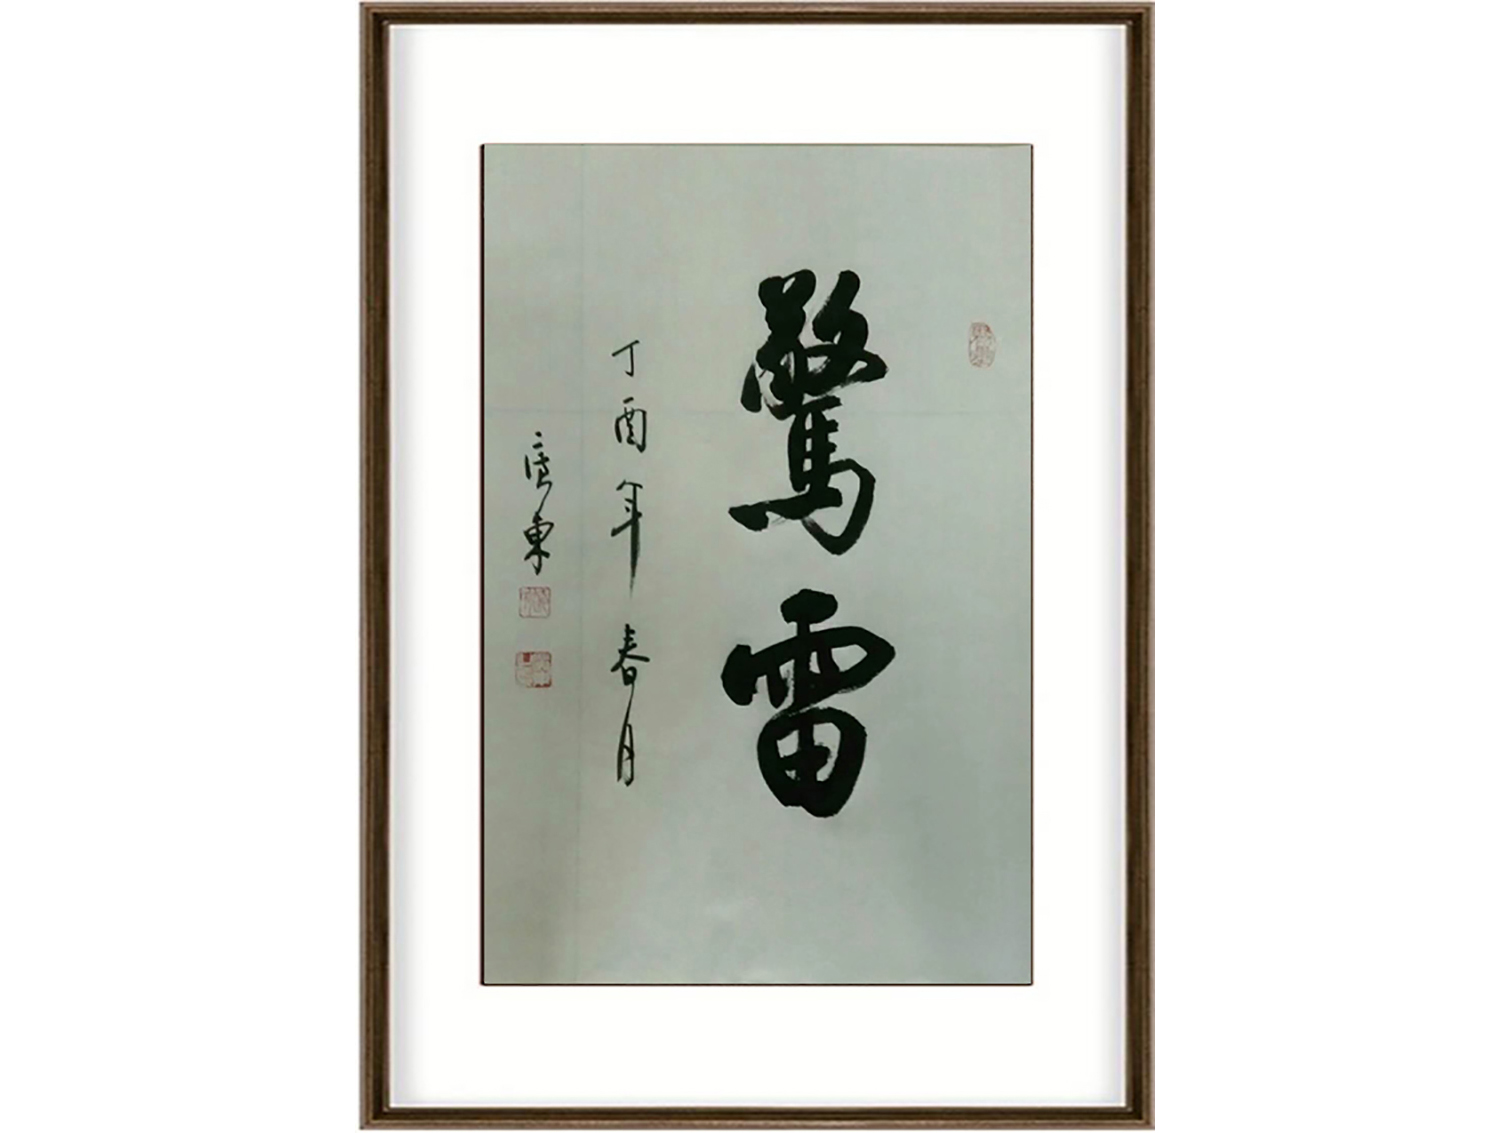 驚雷
丁酉年春月